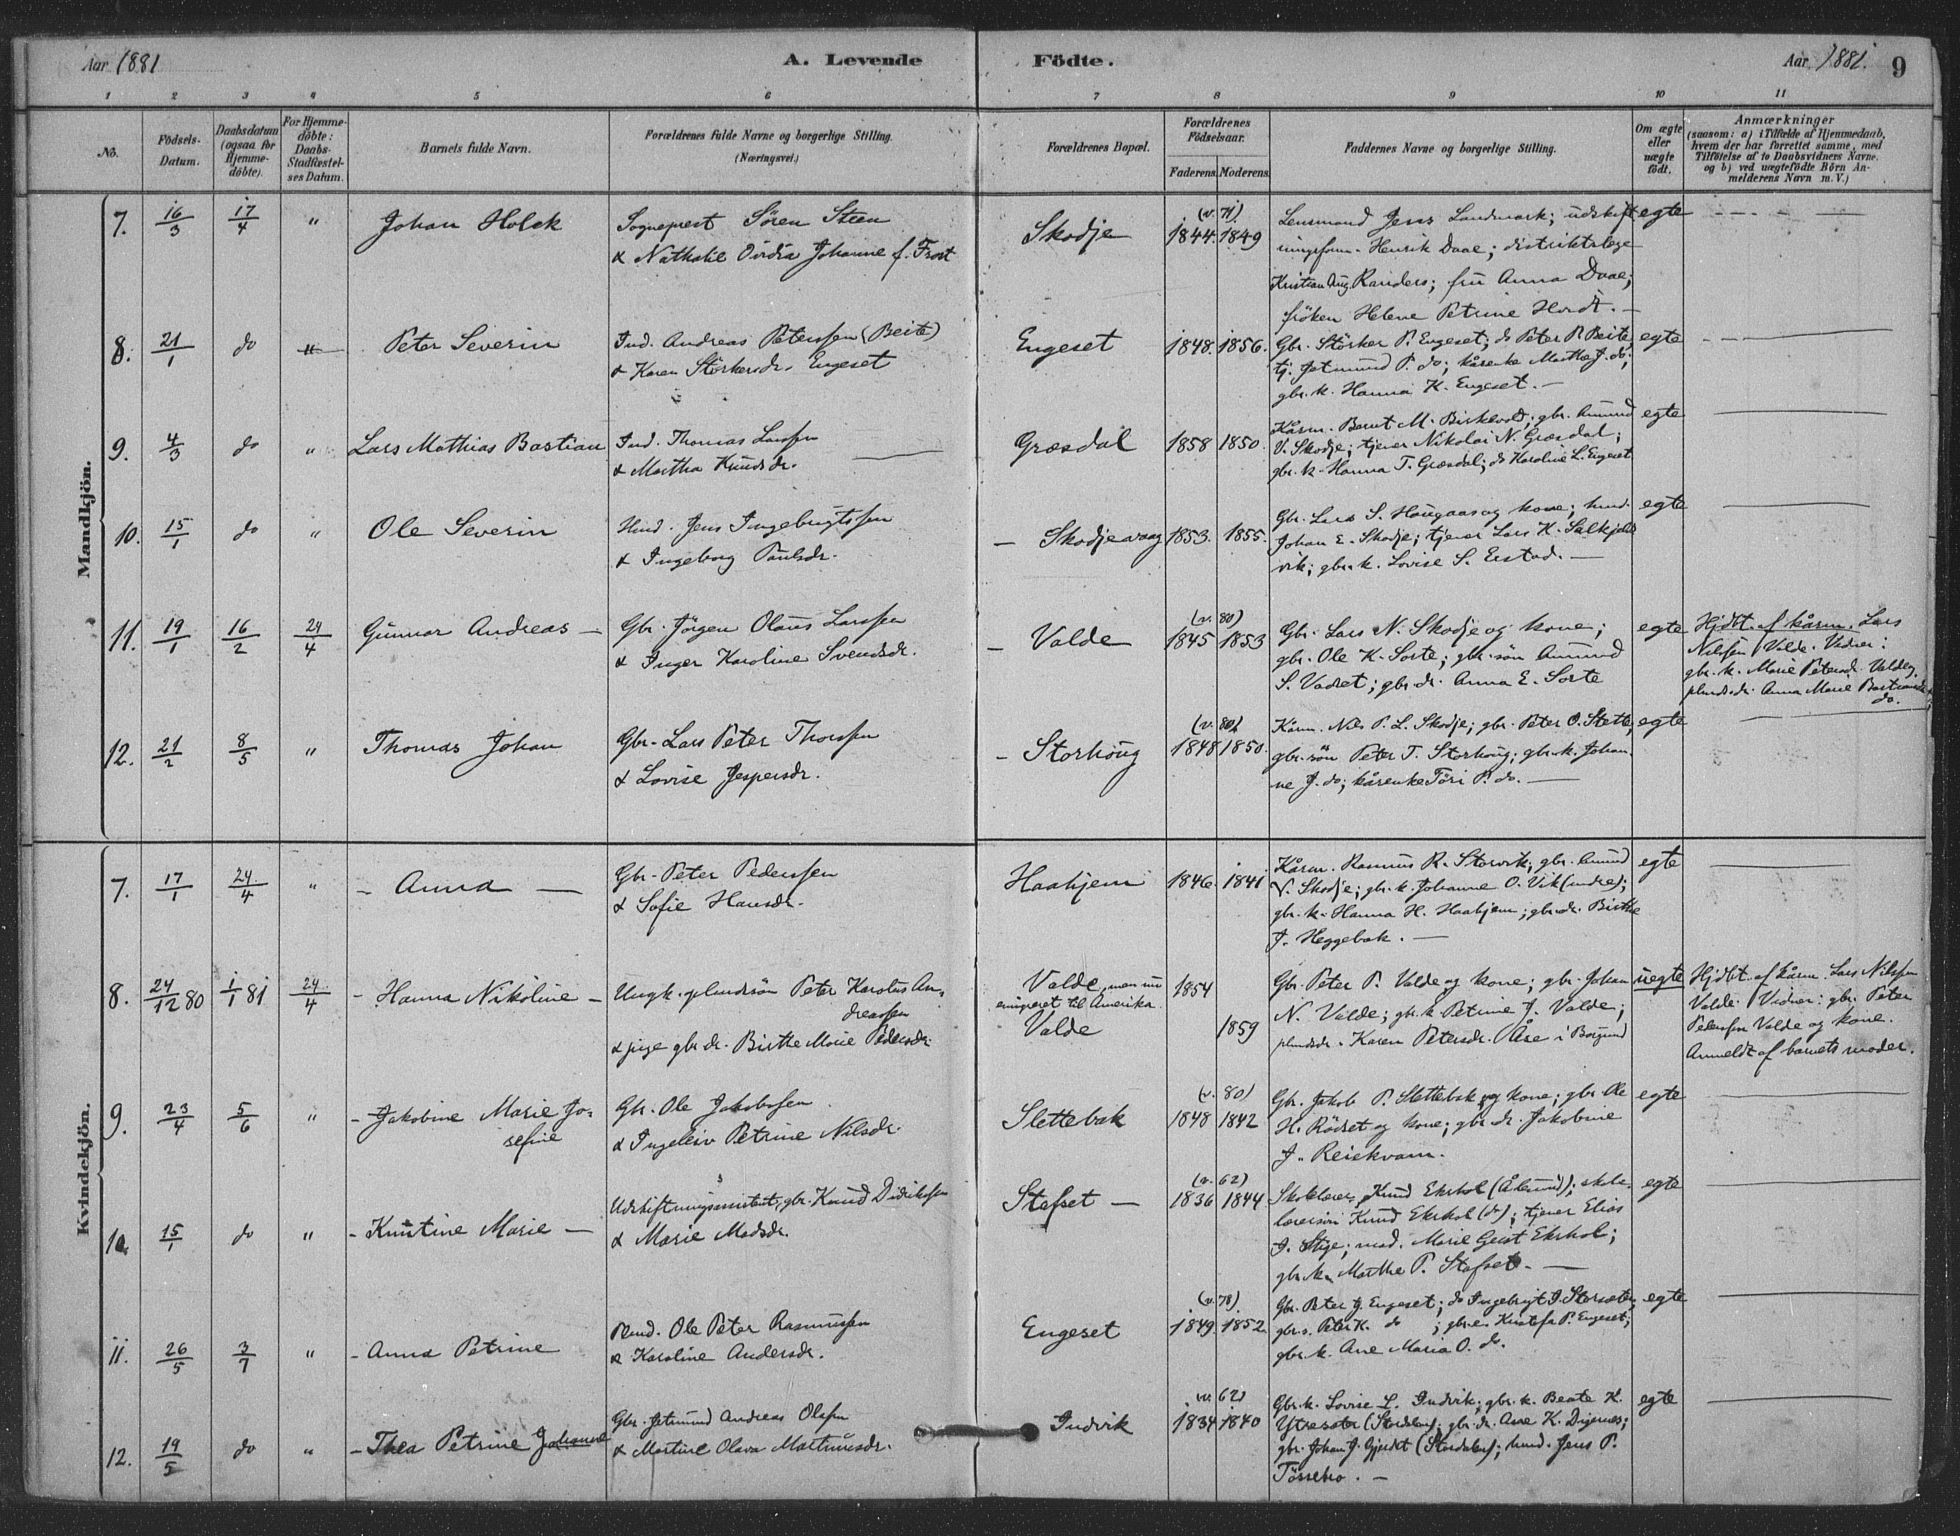 Aar 1881 A. Levende Födte. Aar 1881. 9
1 2 3 4 5 6 7 8 9 10 11
No. Födsels-Datum. Daabsdatum (ogsaa for Hjemmedöbte). For Hjemmedöbte: Daabs-Stadfæstelses Datum. Barnets fulde Navn. Forældrenes fulde Navne og borgerlige Stilling. (Næringsvei.) Forældrenes Bopæl. Forældrenes Födselsaar. Faderens. Moderens. Faddernes Navne og borgerlige Stilling. Om ægte eller uægte födt. Anmærkninger (saasom: a) i Tilfælde af Hjemmedaab, hvem der har forrettet samme, med Tilföielse af to Daabsvidners Navne. og b) ved uægtefödte Börn Anmelderens Navn m. V.)
Mandkjön.
7. 16/3 17/4 " Johan Holck
Sogneprest Sören Steen
& Nathalie Ovidia Johanne f. Frost
Skodje
(v. 71)
1844. 1849
Lensmand Jens Landmark; udskift
ningsform. Henrik Daae; distriktslæge
Kristian Aug. Randers; fru Anna Daae;
fröken Helene Petrine Hordt. —
egte
8. 21/1 do " Peter Severin
Ind. Andreas Peterssen (Beite)
& Karen Störkersdr. Engeset
Engeset
1848. 1856.
Gbr. Störker P. Engeset; do Peter P. Beite;
tj. Jetmund P. do; kårenke Marthe J. do;
gbr. k. Hanna K. Engeset. —
egte
9. 4/3 do " Lars Mathias Bastian
Ind. Thomas Larssen
& Martha Knudsdr.
Græsdal
1858 1850.
Kårm. Bernt M. Birkevold; gbr. Amund
V. Skodje; tjener Nikolai N. Græsdal;
gbr. k. Hanna T. Græsdal; do Karoline L. Engeset
egte
10. 15/1 do " Ole Severin
Husd. Jens Ingebrigtssen
& Ingeborg Paulsdr.
— Skodjevaag
1853. 1855.
Gbr. Lars S. Haugaas og kone; husd.
Johan E. Skodje; tjener Lars K. Salkjels
vik; gbr. k. Lovise S. Erstad. —
egte
11. 19/1 16/2 24/4 Gunnar Andreas —
Gbr. Jörgen Olaus Larssen
& Inger Karoline Svendsdr.
— Valde
(v. 80)
1845 1853
Gbr. Lars N. Skodje og kone;
gbr. Ole K. Sorte; gbr. sön Amund
S. Vadset; gbr. dr. Anna E. Sorte
egte
Hjdbt. af kårm. Lars
Nilssen Valde. Vidner:
gbr. k. Marie Petersdr. Valde;
plads. dr. Anna Marie Bastiansdr.
do.
12. 21/2 8/5 " Thomas Johan
Gbr. Lars Peter Thorssen
& Lovise Jespersdr.
— Storhoug
(v. 80)
1848 1850.
Kårm. Nils P. L. Skodje; gbr. Peter O. Stette;
gbr. sön Peter T. Storhoug; gbr. k. Johan
ne J. do; kårenke Töri P. do. —
egte
Kvindekjön.
7. 17/1 24/4 " — Anna —
Gbr. Peter Pederssen
& Sofie Hansdr.
Haahjem
1846. 1841.
Kårm. Rasmus R. Storvik; gbr. Amund
V. Skodje; gbr. k. Johanne O. Vik (indre);
gbr. k. Hanna H. Haahjem; gbr. dr. Birthe
J. Heggebak. —
egte
8. 24/12 80 1/1 81 24/4 — Hanna Nikoline —
Ungk. pladssön Peter Karolus An-
dreassen
& pige gbr. dr. Birthe Marie Pedersdr.
Valde, men nu
emigreret til Amerika
Valde
1854
1859
Gbr. Peter P. Valde og kone; gbr. Johan
N. Valde; gbr. k. Petrine J. Valde;
pladsdr. Karen Petersdr. Åse i Borgund
uegte
Hjdbt. af kårm. Lars Nilssen
Valde. Vidner: gbr. Peter
Peterssen Valde og kone.
Anmeldt af barnets moder.
9. 23/4 5/6 " — Jakobine Marie Jo-
sefine
Gbr. Ole Jakobssen
& Ingeleiv Petrine Nilsdr.
Slettebak
(v. 80)
1848 1842
Gbr. Jakob P. Slettebak og kone; gbr. Ole
H. Rödset og kone; gbr. dr. Jakobine
J. Reiekvam.
egte
10. 15/1 do " — Knutine Marie —
Udskiftningsassistent, gbr. Knud Didrikssen
& Marie Madsdr.
Stafset —
(v. 62)
1836 1844
Skolelærer Knud Ekrhol (Ålesund); skole
lærersön Knud Ekrhol (do); tjener Elias
J. Stige; mad. Marie Geist Ekrhol;
gbr. k. Marthe P. Stafset. —
egte
11. 26/5 3/7 " — Anna Petrine
Husd. Ole Peter Rasmussen
& Karoline Andersdr.
Engeset
(v. 78)
1849. 1852.
Gbr. Peter J. Engeset; do Ingebrigt J. Storsæter;
gbr. s. Peter K. do; gbr. e. Kristofa P. Engeset;
gbr. k. Ane Maria O. do.
egte
12. 19/5 do " — Thea Petrine Johanne
Gbr. Jetmund Andreas Olssen
& Martine Olava Martinusdr.
Indvik
(v. 62)
1834 1840
Gbr. k. Lovise L. Indvik; gbr. k. Beate K.
Ytresæter (Stordalen); gbr. dr. Ane K. Digernes;
gbr. Johan J. Gjerdet (Stordalen); husd. Jens P.
Tössebro. —
egte